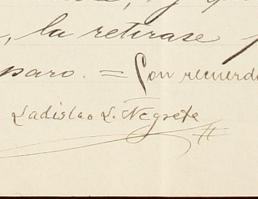 y q
, la retirase p
paro. = Con recuerdo
Ladislao L. Negrete